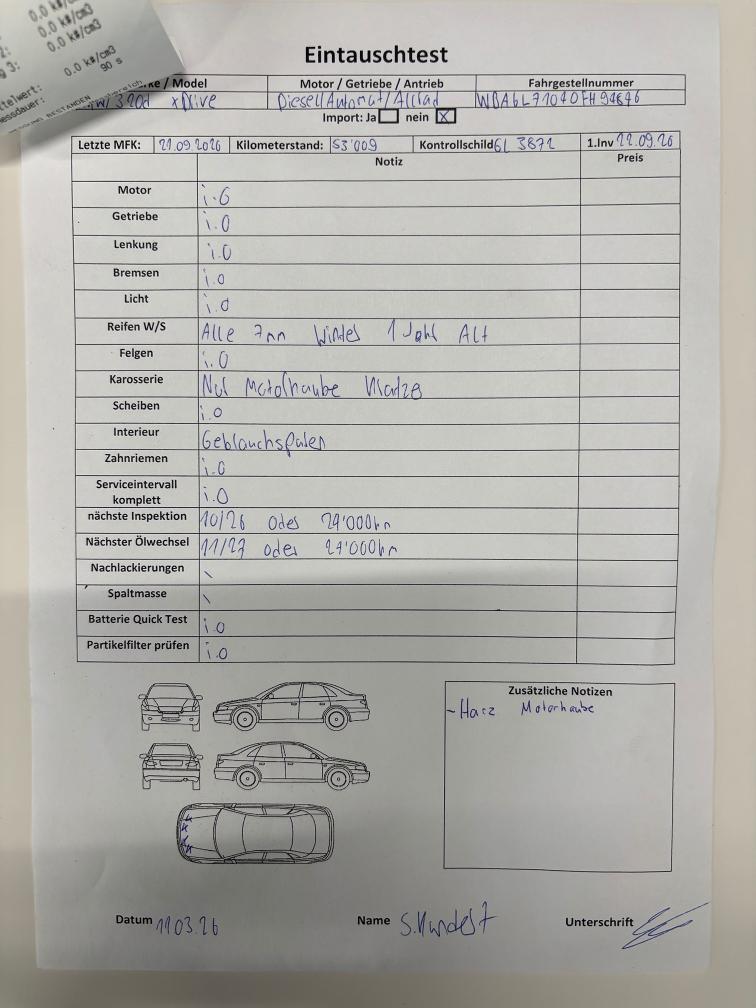 0.0 k#/cm3
0.0 k#/cm3
3: 0.0 k#/cm3
telwert: 0.0 k#/cm3
essdauer: 90 s
BESTANDEN
Eintauschtest
ke / Model Motor / Getriebe / Antrieb Fahrgestellnummer
320d xDrive Diesel/Automat/Allrad
Import: Ja nein X
Letzte MFK: 21.09.2026 Kilometerstand: 53'009 Kontrollschild GL 3871 1.Inv
Notiz Preis
Motor i.O
Getriebe i.O
Lenkung i.O
Bremsen i.O
Licht i.O
Reifen W/S Alle 7mm Winter 1 Jahr Alt
Felgen i.O
Karosserie Nur Motorhaube Kratzer
Scheiben i.O
Interieur Gebrauchspuren
Zahnriemen i.O
Serviceintervall komplett i.O
nächste Inspektion 10/26 oder 29'000km
Nächster Ölwechsel 11/27 oder 29'000km
Nachlackierungen \
Spaltmasse \
Batterie Quick Test i.O
Partikelfilter prüfen i.O
Zusätzliche Notizen
- Harz Motorhaube
K
K
K
K
Datum 11.03.26 Name Unterschrift